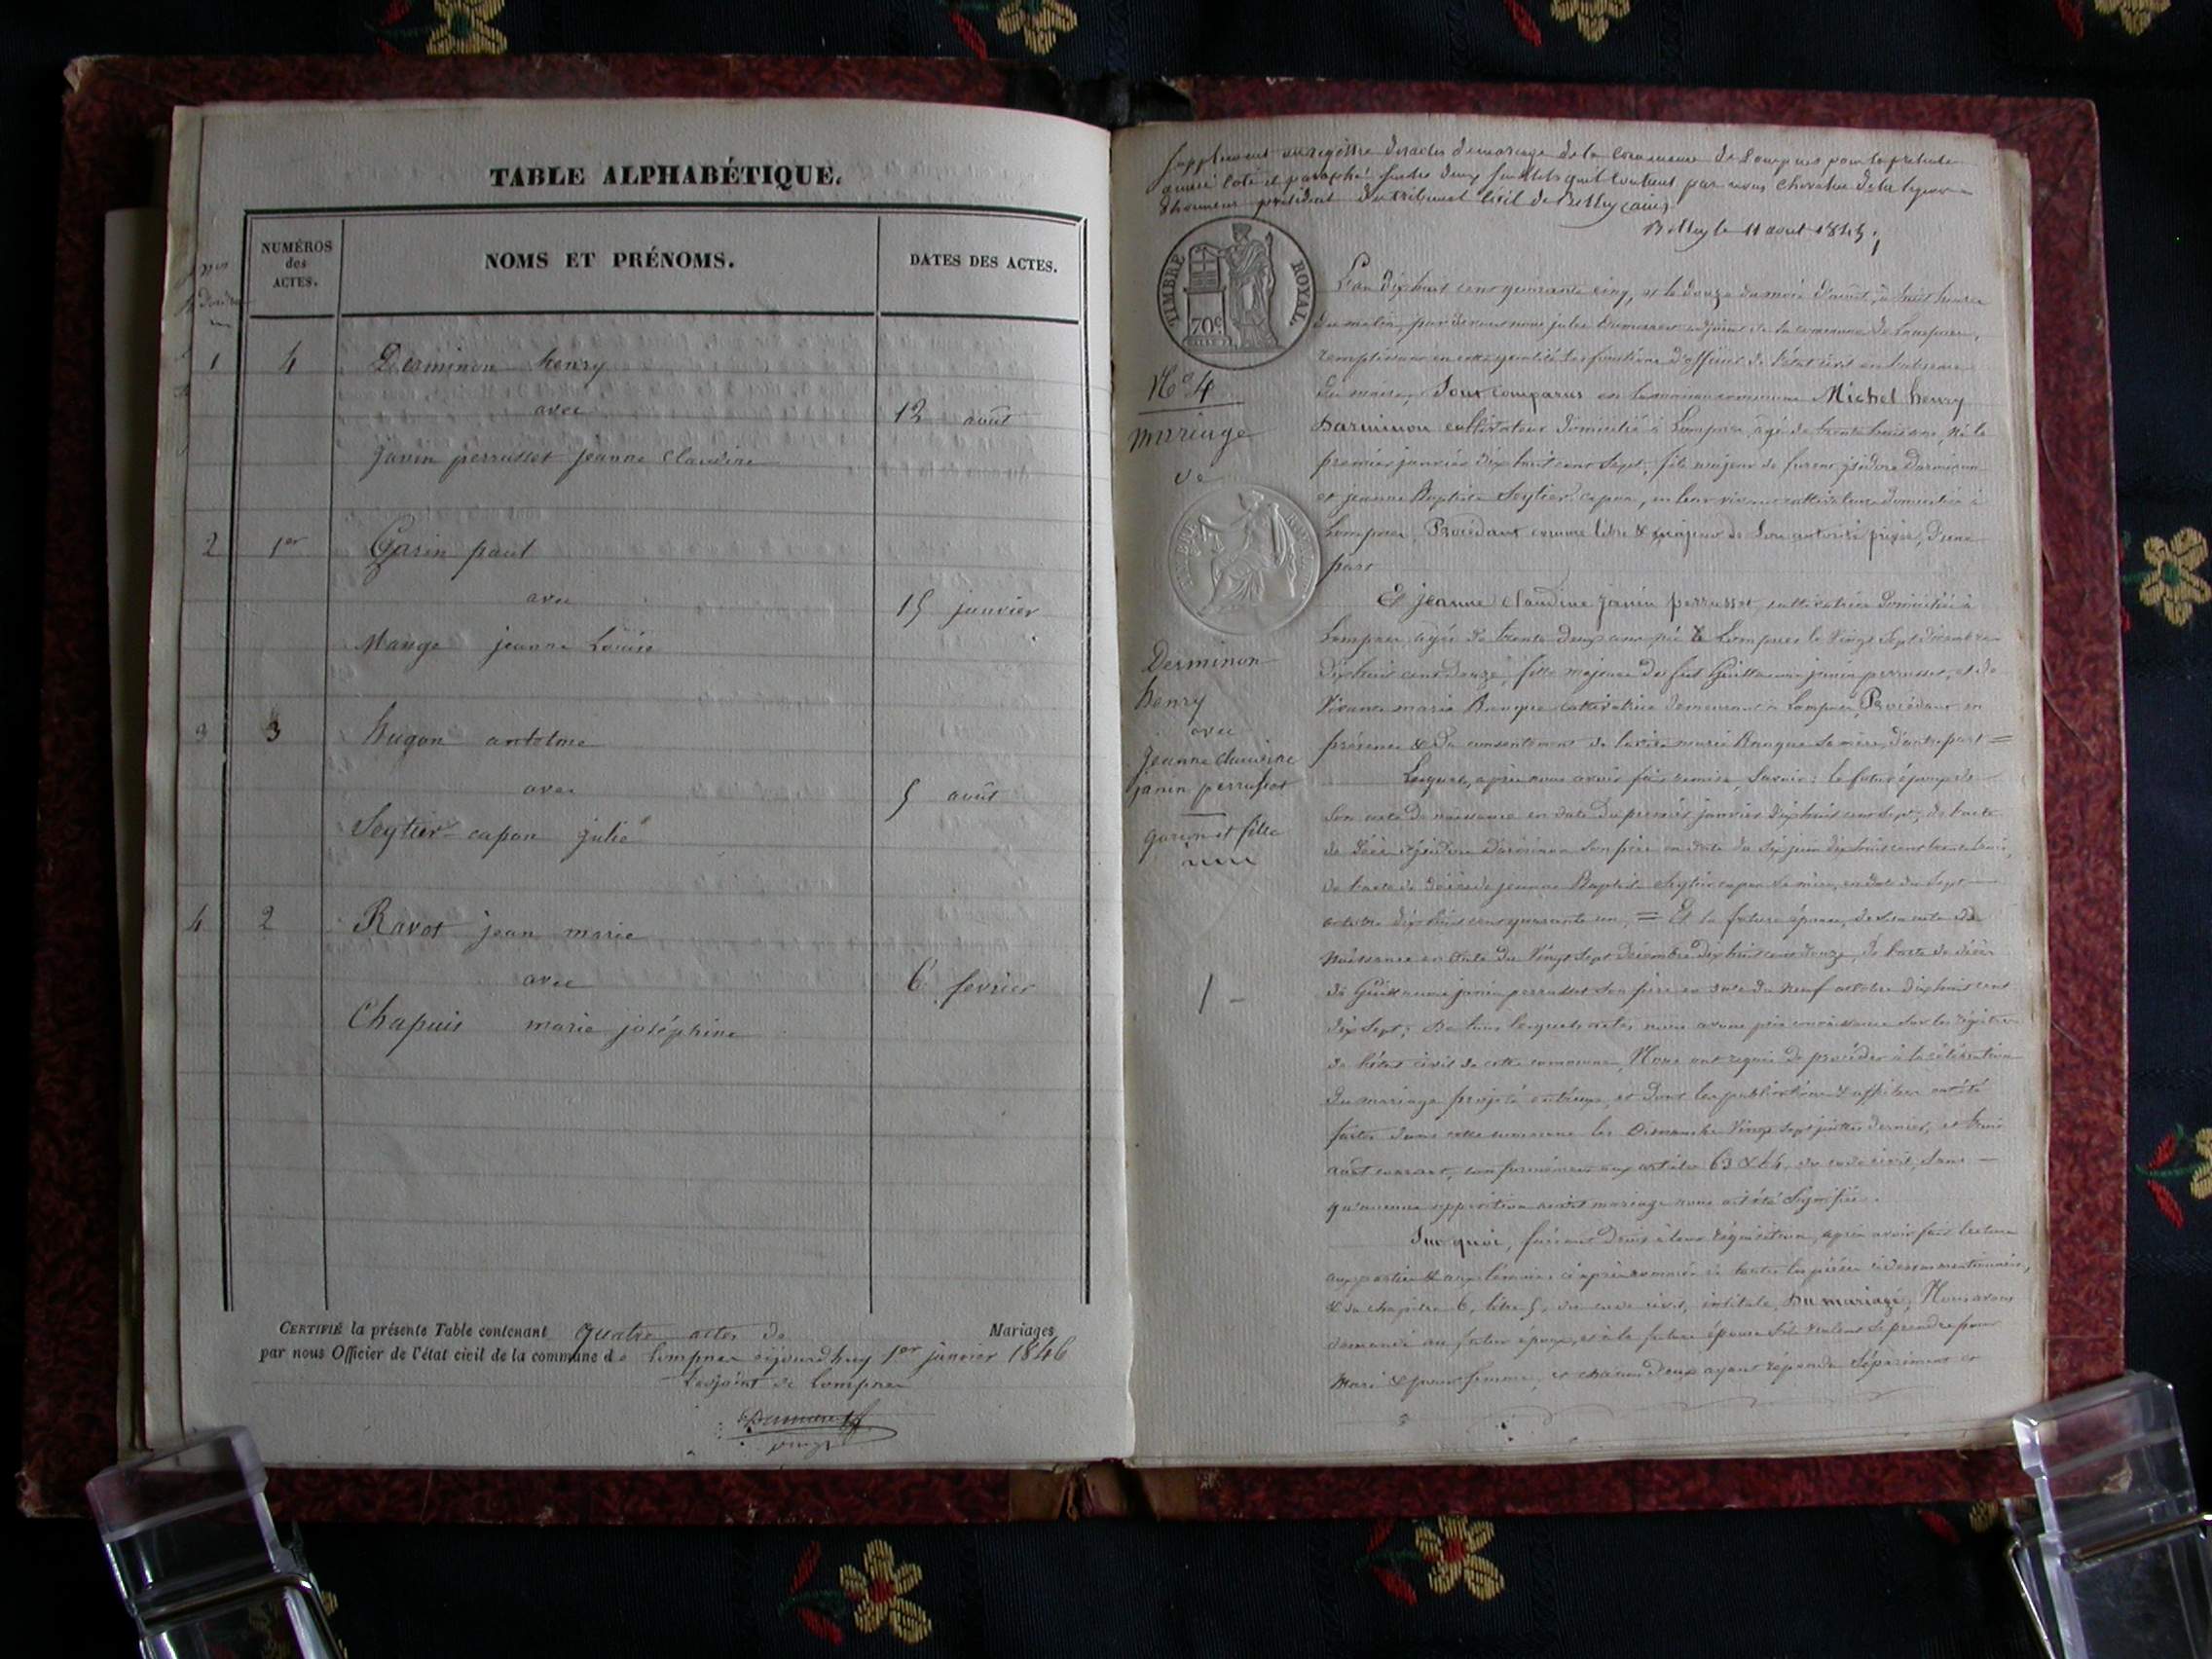 TABLE ALPHABÉTIQUE.
NUMÉROS
des
ACTES.
NOMS ET PRÉNOMS.
DATES DES ACTES.
1 4 Derminon henry
avec
12 août
janin perrusset jeanne Claudine
2 1er Garin paul
avec
15 janvier
Mange jeanne Louise
3 3 hugon antoine
avec
5 août
Seytier-capon julie
4 2 Ravot jean marie
avec
6 fevrier
Chapuis marie joséphine
CERTIFIÉ la présente Table contenant quatre actes de Mariages
par nous Officier de l'état civil de la commune de Lompnes aujourdhuy 1er janvier 1846
L'adjoint de Lompnes
Supplement au registre des actes de mariage de la Commune de Lompnes pour la présente
année coté et paraphé sur les deux feuillets qu'il contient par nous Chevalier de la legion
d'honneur président du tribunal Civil de Belley (ain)
Belley le 11 aout 1845
TIMBRE ROYAL
70c
No 4
mariage
de
Derminon
henry
avec
Jeanne claudine
janin perrusset
garçon et fille
L'an dix huit cent quarante cinq, et le douze du mois d'août, à huit heures
du matin, par devant nous jules adjoint de la commune de Lompnes,
remplissant en cette qualité les fonctions d'officier de l'état civil en
du maire, Sont comparus en la maison commune Michel henry
Darminon cultivateur domicilié à Lompnes, âgé de trente huit ans, né le
premier janvier dix huit cent sept, fils majeur de furent isidore Darminon
et jeanne Baptiste Seytier-capon, en leur vivant cultivateurs domiciliés à
Lompnes, Procédant comme libre & majeur de son autorité privée, d'une
part
Et jeanne claudine janin perrusset, cultivatrice domiciliée à
Lompnes âgée de trente deux ans, née à Lompnes le vingt sept décembre
dix huit cent douze, fille majeure de feu Guillaume janin perrusset, et de
Vivante marie Ranque cultivatrice demeurant à Lompnes, Procédant en
présence & du consentement de ladite marie Ranque sa mère, d'autre part =
Lesquels, après nous avoir fait remise, Savoir : le futur époux de
son acte de naissance en date du premier janvier dix huit cent sept; de l'acte
de décès d'isidore Darminon son père en date du six juin dix huit cent trente
de l'acte de décès de jeanne Baptiste Seytier capon sa mère, en date du sept
octobre dix huit cent quarante un, = Et la future épouse, de son acte de
naissance en date du Vingt Sept décembre dix huit cent douze, de l'acte de décès
de Guillaume janin perrusset son père en date du neuf octobre dix huit cent
dix sept; De tous lesquels actes nous avons pris connaissance sur les régistres
de l'état civil de cette commune, Nous ont requis de procéder à la célébration
du mariage projeté entr'eux, et dont les publications & affiches ont été
faites dans cette commune les Dimanche Vingt sept juillet dernier, et trois
août courant, conformément aux articles 63 & 64 du code civil, sans
qu'aucune opposition audit mariage nous ait été signifiée.
Sur quoi, faisant droit à leur réquisition, après avoir fait lecture
aux parties & aux témoins ci après nommés de toutes les pièces ci dessus mentionnées,
& du chapitre 6, titre 5, du code civil, intitulé, Du mariage, Nous avons
demandé au futur époux, et à la future épouse s'ils veulent se prendre pour
Mari & pour femme, et chacun d'eux ayant répondu séparément et